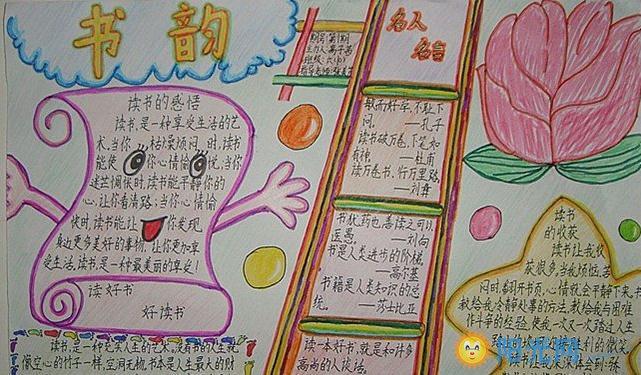 书韵
读书的感悟
读书,是一种享受生活的艺
术,当你 枯燥烦闷,时,读书
能使 你心情恰 ,当你
迷茫惆怅时,读书能平静你的
心,让你看清路;当你心情恰
时,读书能让 你发现
身边更多美好的事物,让你更加享
受生活,读书是一种最美丽的享受!
读好书
好读书
名人
名言
敏而好学,不耻下
问。 ——孔子
读书破万卷,下笔如
有神 ——杜甫
读万卷书,行万里路,
——刘彝
书犹药也,善读之可以
医愚。 ——刘向
书是人类进步的阶梯,
——高尔基
书籍是人类知识的总
统。 ——莎士比亚
读一本好书,就是和许多
高尚的人谈话。
读书
的收获
读书让我收
获很多,当我烦恼,苦
闷时,翻开书页,心情就会平静下来,书
教给我冷静处事的方法,教给我与困难
作斗争的经验,使我一次又一次踏过人生
的微笑
读书,是一种充实人生的艺术,没有书的人生就
像空心的竹子一样,空洞无物,书本是人生最大的财
阳光网